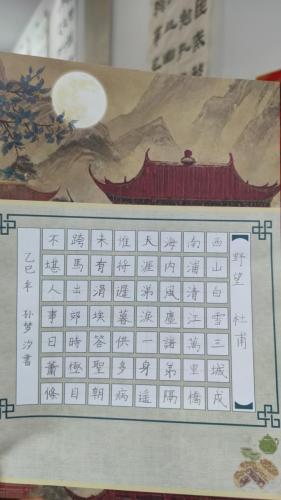 野望 杜甫
西山白雪三城戍
南浦清江萬里橋
海内風塵諸弟隔
天涯涕淚一身遥
惟将遲暮供多病
未有涓埃答聖朝
跨馬出郊時極目
不堪人事日蕭條
乙巳年 孙梦汐書